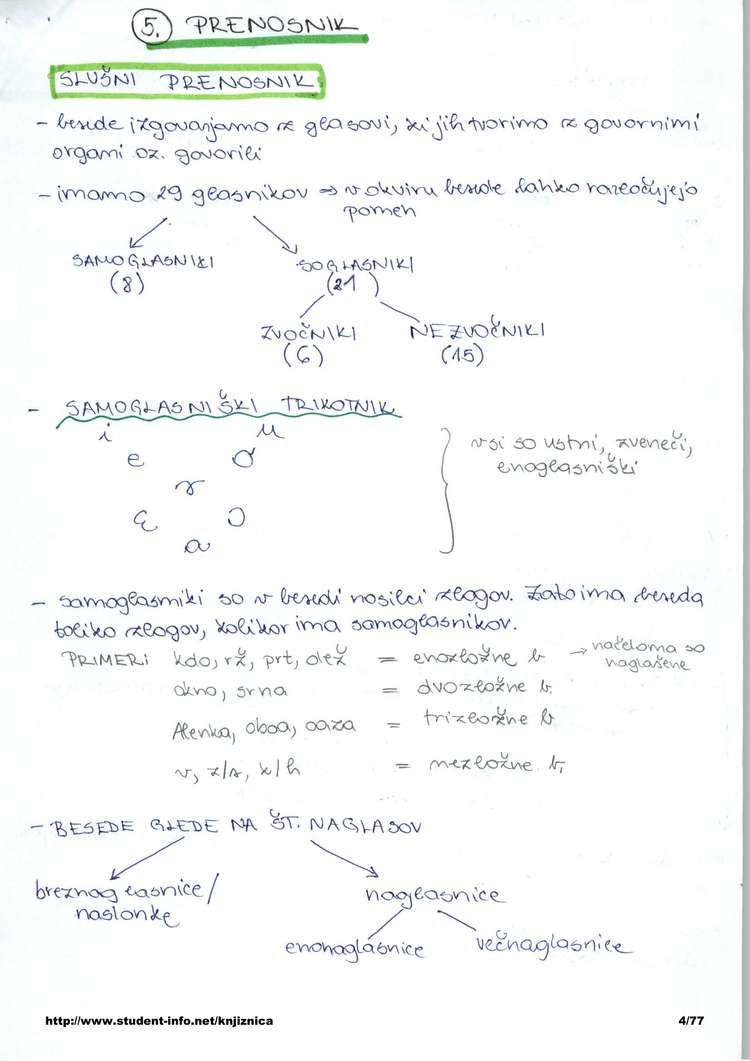 5. PRENOSNIK
SLUŠNI PRENOSNIK
- besede izgovarjamo z glasovi, ki jih tvorimo z govornimi
organi oz. govorili
- imamo 29 glasnikov ⇒ v okviru besede lahko razločujejo
pomen
SAMOGLASNIKI SOGLASNIKI
(8) (21)
ZVOČNIKI NEZVOČNIKI
(6) (15)
- SAMOGLASNIŠKI TRIKOTNIK
i u
e o
ə
ɛ ɔ
a
vsi so ustni, zveneči,
enoglasniški
- samoglasniki so v besedi nosilci zlogov. Zato ima beseda
toliko zlogov, kolikor ima samoglasnikov.
PRIMERI kdo, rž, prt, olež = enozložne b. → načeloma so
naglašene
okno, srna = dvozložne b.
Alenka, oboa, oaza = trizložne b
v, z/s, k/h = nezložne b.
- BESEDE GLEDE NA ŠT. NAGLASOV
breznaglasnice/ naglasnice
naslonke
enonaglasnice večnaglasnice
http://www.student-info.net/knjiznica 4/77